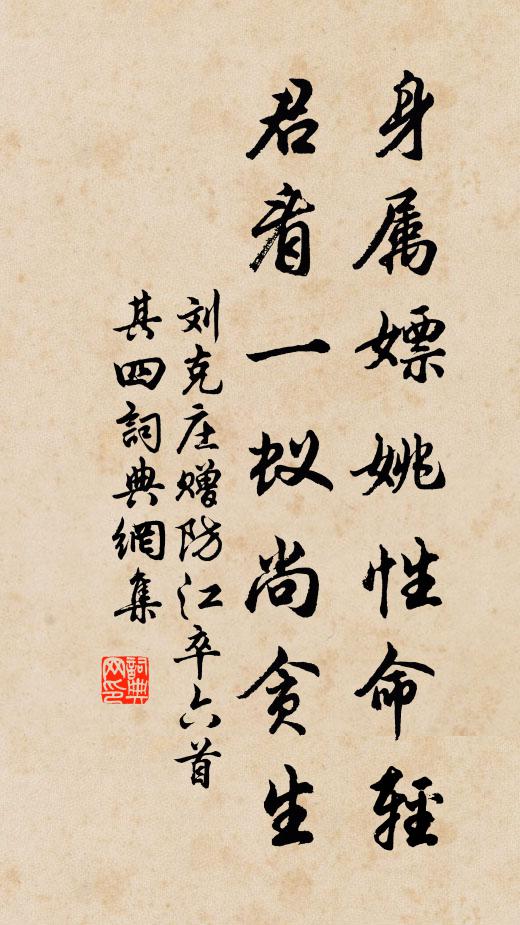 身属嫖姚性命輕
君看一蚁尚贪生
刘克庄赠防江卒六首
其四詞典網集
詞典网印